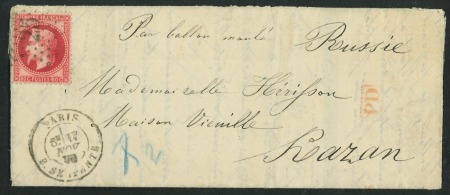 Par ballon monté
Russie
Mademoiselle Hérisson
PD
Maison Vieuille
Kazan
PARIS
R. SERPENTE